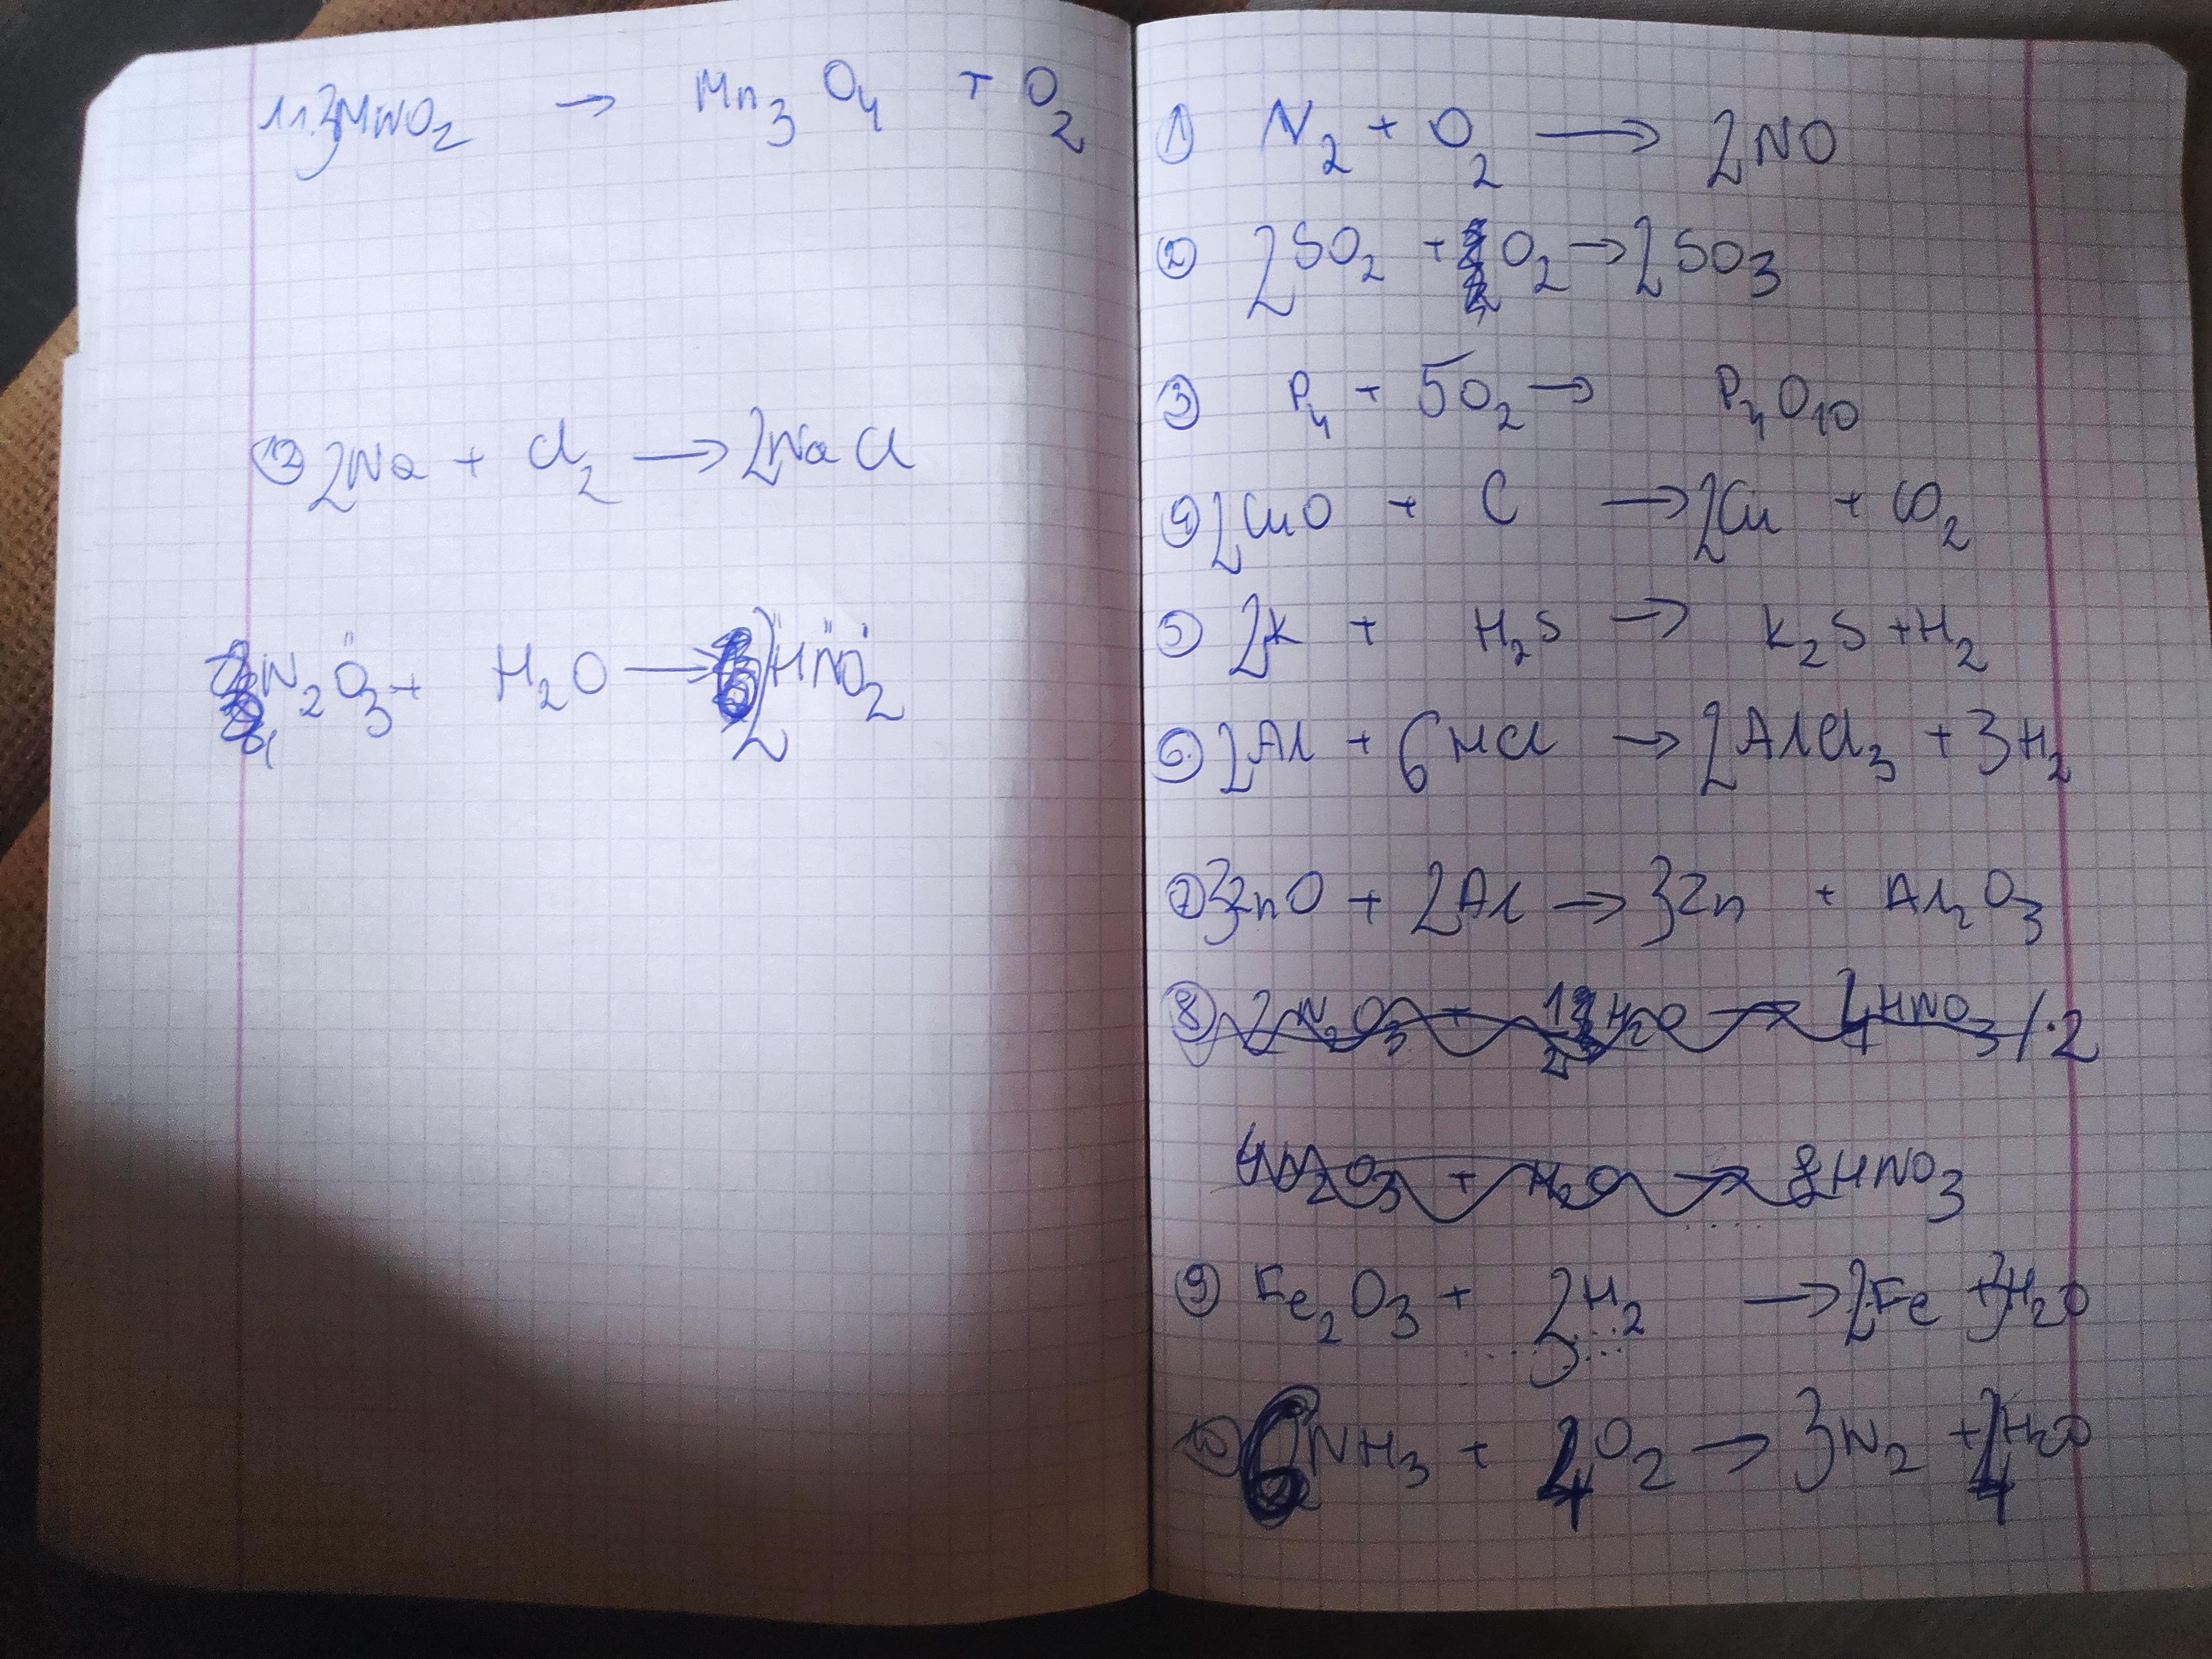 11. 3MnO₂ → Mn₃O₄ + O₂
12 2Na + Cl₂ → 2NaCl
N₂O₃ + H₂O → 2HNO₂
1 N₂ + O₂ → 2NO
2 2SO₂ + O₂ → 2SO₃
3 P₄ + 5O₂ → P₄O₁₀
4 2CuO + C → 2Cu + CO₂
5 2K + H₂S → K₂S + H₂
6 2Al + 6HCl → 2AlCl₃ + 3H₂
7 3ZnO + 2Al → 3Zn + Al₂O₃
8 2N₂O₃ + H₂O → 4HNO₃ /·2
4N₂O₃ + H₂O → 8HNO₃
9 Fe₂O₃ + 3H₂ → 2Fe + 3H₂O
10 6NH₃ + 4O₂ → 3N₂ + 4H₂O